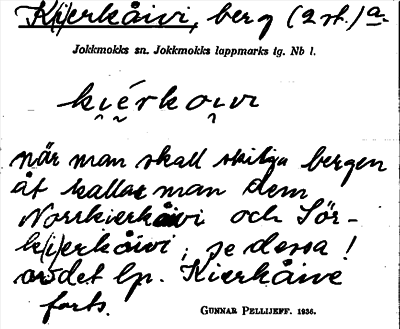 K(i)erkåivi, berg (2 st.) a.
Jokkmokks sn. Jokkmokks lappmarks tg. Nb l.
ki̯érkoi̯vi
när man skall skilja bergen
åt kallar man dem
Norrkierkåivi och Sör-
k(i)erkåivi, se dessa!
av det lp. Kierkåive
forts.
GUNNAR PELLIJEFF. 1936.